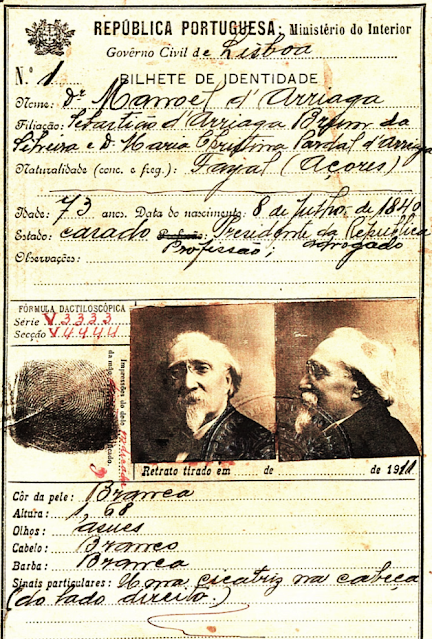 REPÚBLICA PORTUGUESA; Ministério do Interior
Govêrno Civil de Lisboa
N.º 1
BILHETE DE IDENTIDADE
Nome: Dr Manoel d'Arriaga
Filiação: Sebastião d'Arriaga Brum da
Silveira e D. Maria Cristina Pardal d'Arriaga
Naturalidade (conc. e freg.): Fayal (Açores)
Idade: 73 anos. Data do nascimento: 8 de Julho de 1840
Estado: casado Profissão: Presidente da Republica
Profissão; advogado
Observações:
FÓRMULA DACTILOSCÓPICA
Série V3333
Secção V4444
Impressões do dedo
da mão
Retrato tirado em de de 1911
Côr da pele: Branca
Altura: 1,68
Olhos: asues
Cabelo: Branco
Barba: Branca
Sinais particulares: Uma cicatriz na cabeça
(do lado direito.)